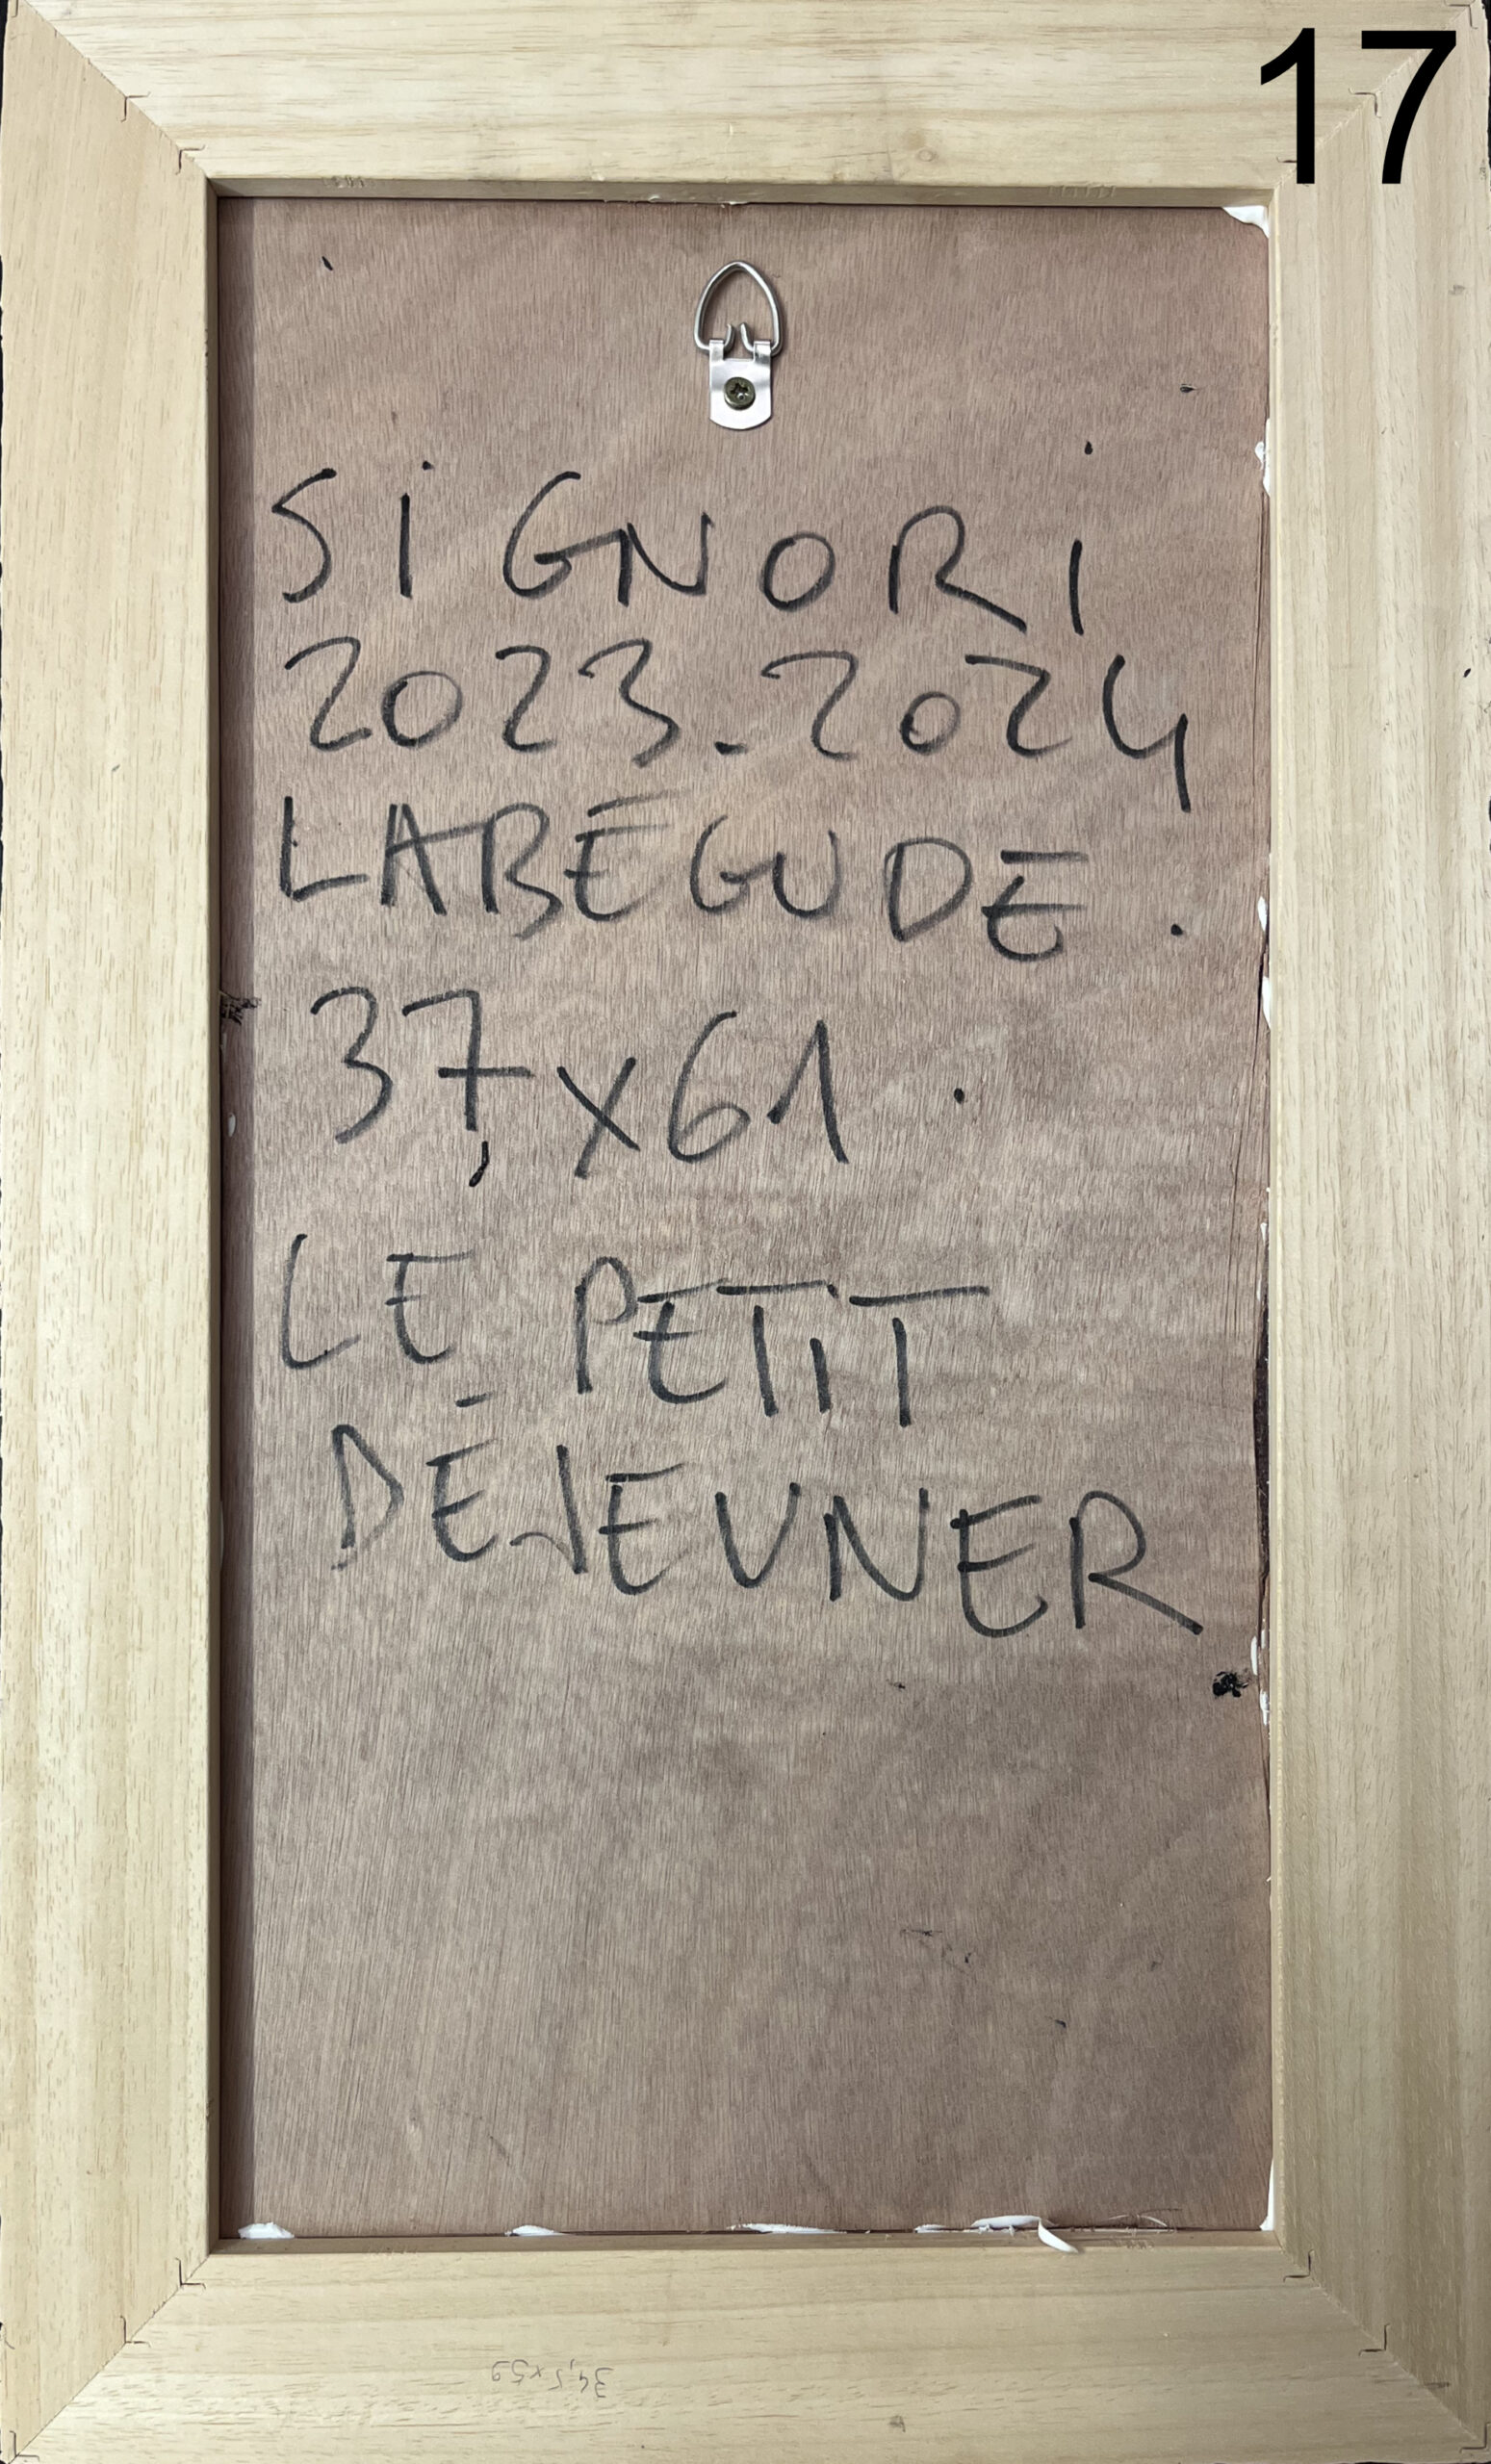 17
SiGNORi
2023-2024
LABÉGUDE.
37,x61.
LE PETIT
DÉJEUNER
34,5x59